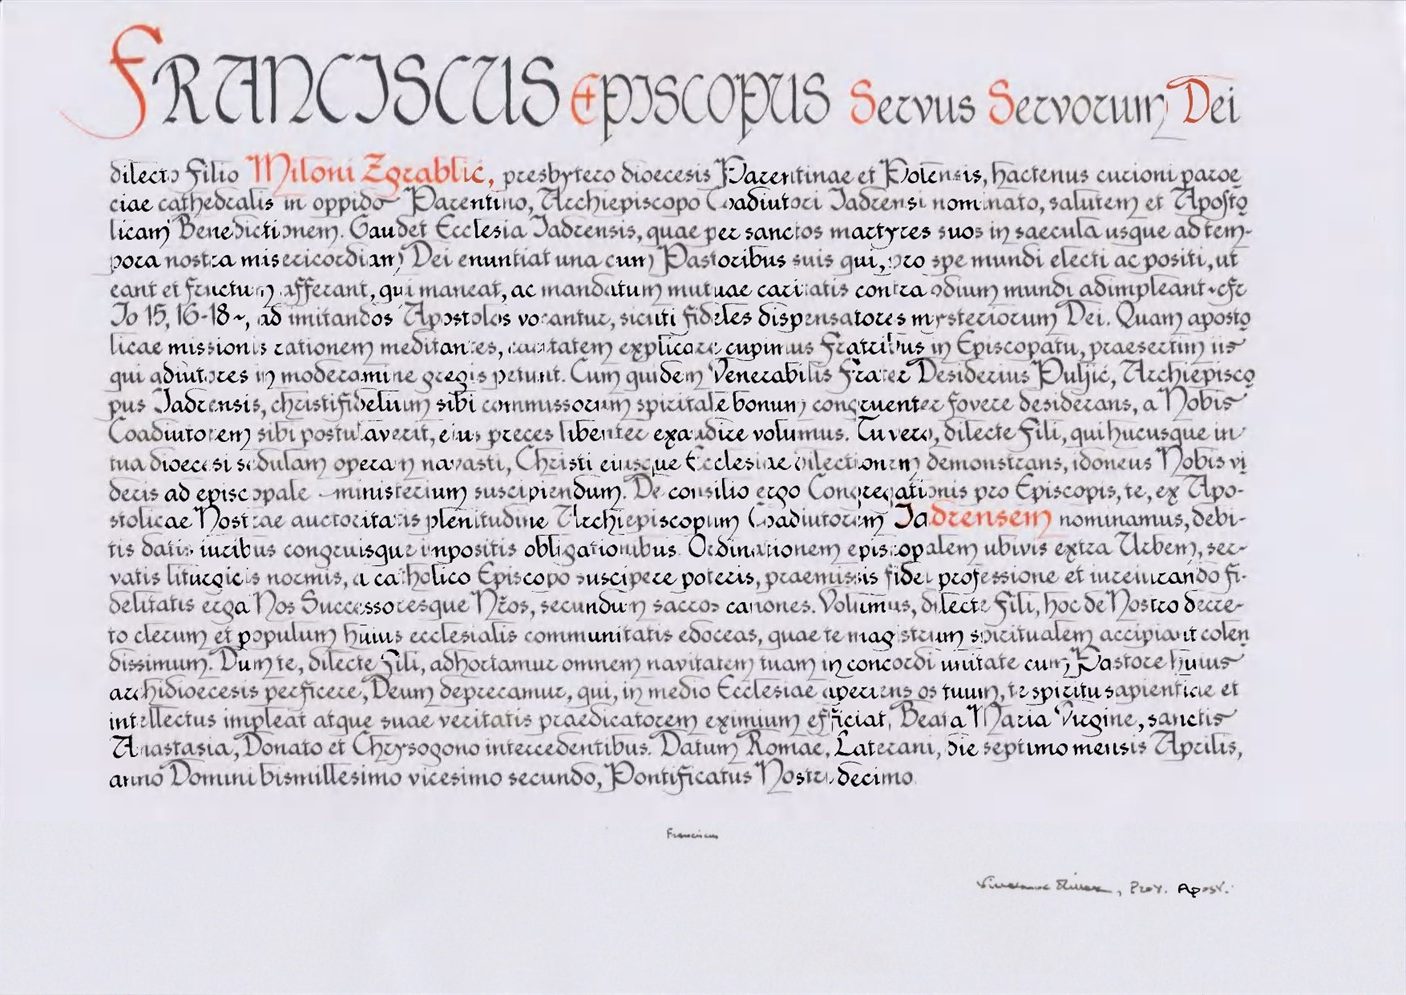 FRANCISCUS EPISCOPUS Servus Servorum Dei
dilecto Filio Miloni Zgrablic, presbytero dioecesis Parentinae et Polensis, hactenus curioni paroe
ciae cathedralis in oppido Parentino, Archiepiscopo Coadiutori Iadrensi nominato, salutem et Aposto
licam Benedictionem. Gaudet Ecclesia Iadrensis, quae per sanctos martyres suos in saecula usque ad tem-
pora nostra misericordiam Dei enuntiat una cum Pastoribus suis qui, pro spe mundi electi ac positi, ut
eant et fructum afferant, qui maneat, ac mandatum mutuae caritatis contra odium mundi adimpleant ~ cfr
Io 15, 16-18 ~, ad imitandos Apostolos vocantur, sicuti fideles dispensatores mysteriorum Dei. Quam aposto
licae missionis rationem meditantes, caritatem explicare cupimus Fratribus in Episcopatu, praesertim iis
qui adiutores in moderamine gregis petunt. Cum quidem Venerabilis Frater Desiderius Puljić, Archiepisco
pus Iadrensis, christifidelium sibi commissorum spiritale bonum congruenter fovere desiderans, a Nobis
Coadiutorem sibi postulaverit, eius preces libenter exaudire volumus. Tu vero, dilecte Fili, qui hucusque in
tua dioecesi sedulam operam navasti, Christi eiusque Ecclesiae dilectionem demonstrans, idoneus Nobis vi
deris ad episcopale ministerium suscipiendum. De consilio ergo Congregationis pro Episcopis, te, ex Apo-
stolicae Nostrae auctoritatis plenitudine Archiepiscopum Coadiutorem Iadrensem nominamus, debi-
tis datis iuribus congruisque inpositis obligationibus. Ordinationem episcopalem ubivis extra Urbem, ser-
vatis liturgicis normis, a catholico Episcopo suscipere poteris, praemissis fidei professione et iureiurando fi-
delitatis erga Nos Successoresque Nr̃os, secundum sacros canones. Volumus, dilecte Fili, hoc de Nostro decre-
to clerum et populum huius ecclesialis communitatis edoceas, quae te magistrum spiritualem accipiant colen
dissimum. Dum te, dilecte Fili, adhortamur omnem navitatem tuam in concordi unitate cum Pastore huius
archidioecesis perficere, Deum deprecamur, qui, in medio Ecclesiae aperiens os tuum, te spiritu sapientiae et
intellectus impleat atque suae veritatis praedicatorem eximium efficiat, Beata Maria Virgine, sanctis
Anastasia, Donato et Chrysogono intercedentibus. Datum Romae, Laterani, die septimo mensis Aprilis,
anno Domini bismillesimo vicesimo secundo, Pontificatus Nostri decimo.
Franciscus
, Prot. Apost.